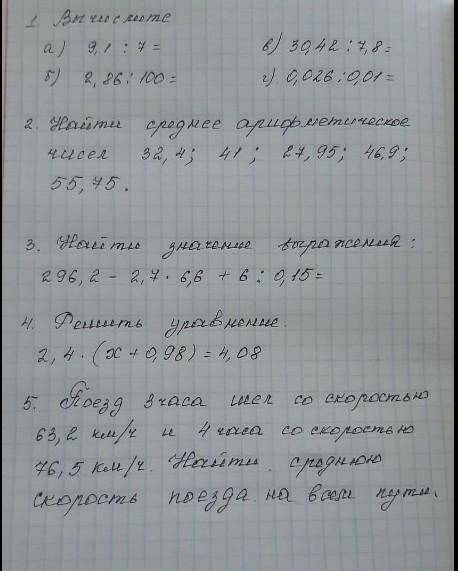 1 Вычислите
а) 9,1 : 7 = в) 30,42 : 7,8 =
б) 2,86 : 100 = г) 0,026 : 0,01 =
2. Найти среднее арифметическое
чисел 32,4; 41; 27,95; 46,9;
55,75.
3. Найти значение выражения:
296,2 - 2,7 · 6,6 + 6 : 0,15 =
4. Решить уравнение.
2,4 · (х + 0,98) = 4,08
5. Поезд 3 часа шел со скоростью
63,2 км/ч и 4 часа со скоростью
76,5 км/ч. Найти среднюю
скорость поезда на всем пути.